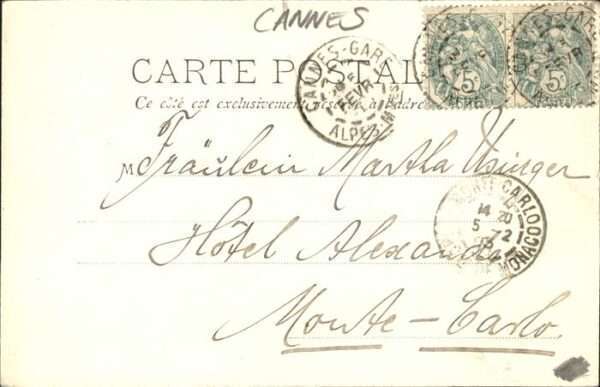 CANNES
CARTE POSTALE
Ce côté est exclusivement réservé à l'adresse
CANNES-GARE
FEVR
ALPES-MMES
5c
5c
M Fräulein Martha Usinger
Hôtel Alexandra
Monte-Carlo
MONTE CARLO
14 20
5 2
MONACO